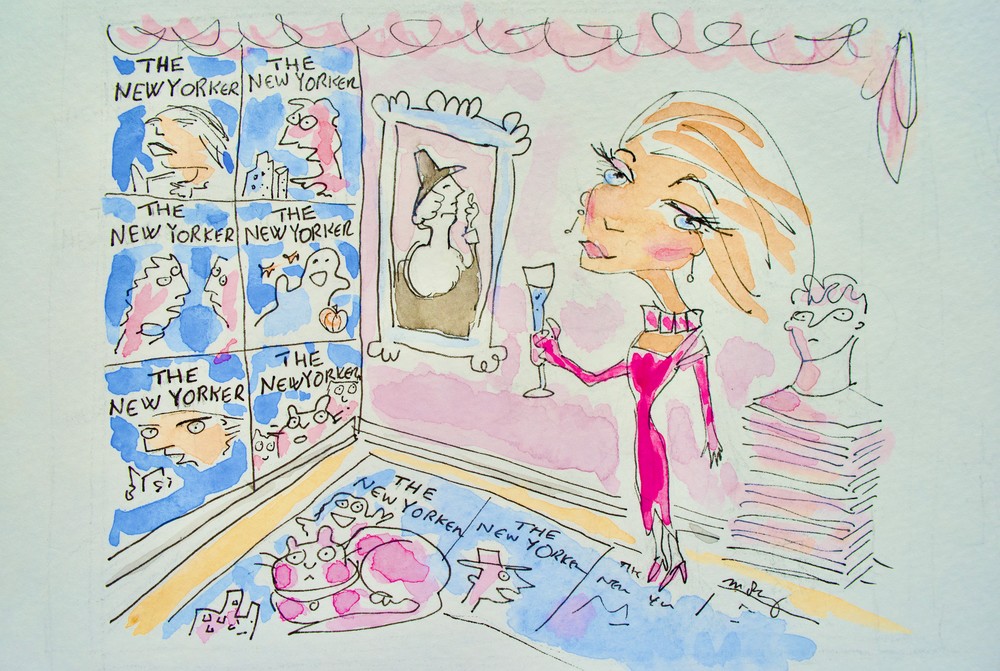 THE
NEW YORKER
THE
NEW YORKER
THE
NEW YORKER
THE
NEW YORKER
THE
NEW YORKER
THE
NEW YORKER
THE
NEW YORKER
THE
NEW YORKER
THE
NEW